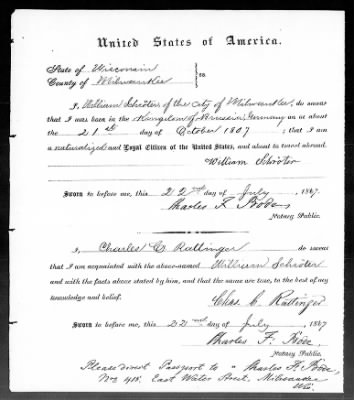 United States of America.
State of Wisconsin
County of Milwaukee } ss:
I, William Schröter of the City of Milwaukee, do swear
that I was born in the Kingdom of Prussia, Germany on or about
the 21st day of October 1807; that I am
a naturalized and Loyal Citizen of the United States, and about to travel abroad.
William Schröter
Sworn to before me, this 22nd day of July, 1867
Charles F. Bode
Notary Public.
I, Charles C. Rattinger do swear
that I am acquainted with the above-named William Schröter
and with the facts above stated by him, and that the same are true, to the best of my
knowledge and belief.
Chas. C. Rattinger
Sworn to before me, this 22nd day of July, 1867
Charles F. Bode,
Notary Public.
Please direct Passport to "Charles F. Bode,
No 415. East Water Street, Milwaukee
Wis.